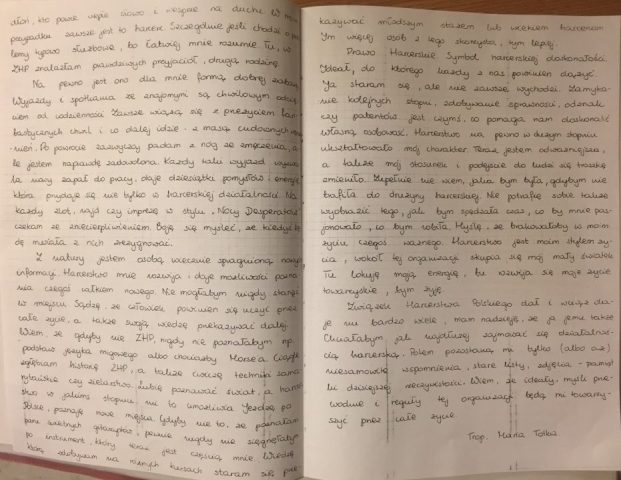 dłoń, kto powie ciepłe słowo i wesprze na duchu. W moim
przypadku zawsze jest to harcerz. Szczególnie jeśli chodzi o
lemy typowo służbowe, bo łatwiej mnie rozumie. Tu, w
ZHP znalazłam prawdziwych przyjaciół, drugą rodzinę.
Na pewno jest ono dla mnie formą dobrej zabawy.
Wyjazdy i spotkania ze znajomymi są chwilowym
od codzienności. Zawsze wiążą się z przeżyciem fan-
tastycznych chwil i co dalej idzie - z masą cudownych
-nień. Po powrocie zazwyczaj padam z nóg ze zmęczenia, a
le jestem naprawdę zadowolona. Każdy taki wyjazd
la mnie zapał do pracy, daje dziesiątki pomysłów i energię,
która przydaje się nie tylko w harcerskiej działalności. Na
każdy zlot, rajd czy imprezę w stylu "Nocy Desperatów"
czekam ze zniecierpliwieniem. Boję się myśleć, że kiedyś
dę musiała z nich zrezygnować.
Z natury jestem osobą wiecznie spragnioną nowych
informacji. Harcerstwo mnie rozwija i daje możliwości pozna
nia czegoś całkiem nowego. Nie mogłabym nigdy stanąć
w miejscu. Sądzę, że człowiek powinien się uczyć przez
całe życie, a także swoją wiedzę przekazywać dalej.
Wiem, że gdyby nie ZHP, nigdy nie poznałabym np.
podstaw języka migowego albo chociażby Morse'a. Ciągle
zgłębiam historię ZHP, a także ćwiczę techniki sama
rytańskie czy zielarstwo. Lubię poznawać świat, a harcer
stwo w jakimś stopniu mi to umożliwia. Jeżdżę po
Polsce, poznaję nowe miejsca. Gdyby nie to, że poznałam
paru świetnych gitarzystów, pewnie nigdy nie sięgnęłabym
po instrument, który teraz jest częścią mnie. Wiedzę,
którą zdobywam na różnych kursach staram się prze
kazywać młodszym stażem lub wiekiem harcerzom.
Im więcej osób z tego skorzysta, tym lepiej.
Prawo Harcerskie. Symbol harcerskiej doskonałości.
Ideał, do którego każdy z nas powinien dążyć.
Ja staram się, ale nie zawsze wychodzi. Zamyka-
nie kolejnych stopni, zdobywanie sprawności, odznak
czy patentów jest czymś, co pomaga nam doskonalić
własną osobowość. Harcerstwo na pewno w dużym stopniu
ukształtowało mój charakter. Teraz jestem odważniejsza,
a także mój stosunek i podejście do ludzi się troszkę
zmieniło. Zupełnie nie wiem, jaka bym była, gdybym nie
trafiła do drużyny harcerskiej. Nie potrafię sobie także
wyobrazić tego, jak bym spędzała czas, co by mnie pas-
jonowało, co bym robiła. Myślę, że brakowałoby w moim
życiu czegoś ważnego. Harcerstwo jest moim stylem ży-
cia, wokół tej organizacji skupia się mój mały światek.
Tu lokuję moją energię, tu rozwija się moje życie
towarzyskie, tym żyję.
Związek Harcerstwa Polskiego dał i wciąż da-
je mi bardzo wiele, mam nadzieję, że ja jemu także.
Chciałabym, jak najdłużej zajmować się działalnoś-
cią harcerską. Potem pozostaną mi tylko (albo aż)
niesamowite wspomnienia, stare listy, zdjęcia - pamiąt
ki dzisiejszej rzeczywistości. Wiem, że ideały, myśli prze-
wodnie i reguły tej organizacji będą mi towarzy-
szyć przez całe życie.
Trop. Maria Totba